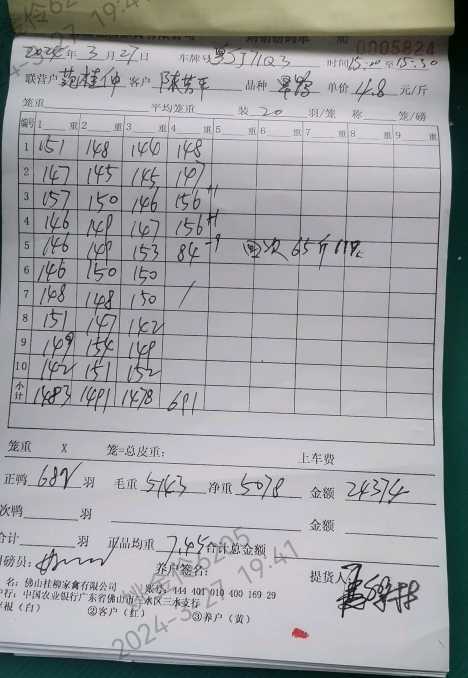 0005824
2024年3月27日 车牌号粤J71Q3 时间15:00至15:30
联营户 范桂仲 客户 陈芳平 品种 单价4.8元/斤
笼重 平均笼重 装20羽/笼 称 笼/磅
编号 1 重 2 重 3 重 4 重 5 重 6 重 7 重 8 重 9 重
1 151 148 146 148
2 147 145 145 147
3 157 150 146 156 +1
4 146 149 147 156 +1
5 146 149 153 84 -9 回次65斤
6 146 150 150
7 148 148 150 /
8 151 147 142
9 149 154 149
10 142 151 152
小计 1483 1491 1478 691
笼重 X 笼=总皮重: 上车费
正鸭682羽 毛重5143 净重5078 金额24374
次鸭 羽 金额
合计 羽 正品均重7.45 合计总金额
司磅员: 养户签名: 提货人:
名: 佛山桂柳家禽有限公司 账号: 444 401 010 400 169 29
户行: 中国农业银行广东省佛山市三水区三水支行
(白) ②客户(红) ③养户(黄)
6205
2024-3-27 19:41